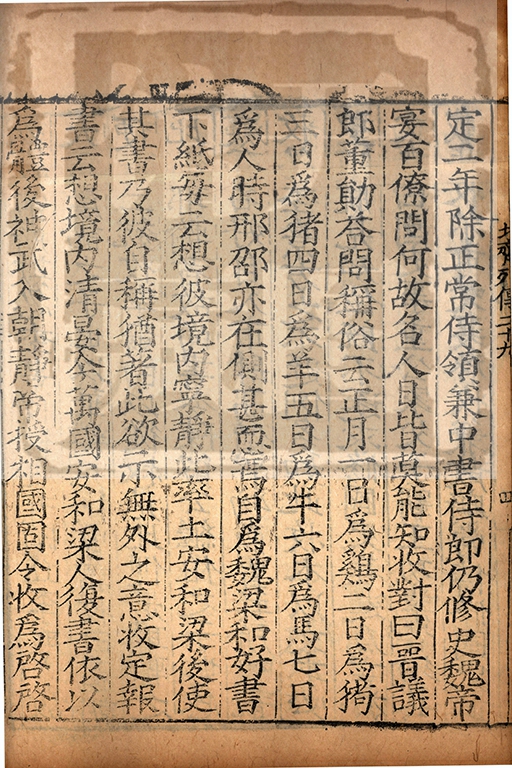 北齊列傳二十九
四
定二年除正常侍領兼中書侍郎仍修史魏帝
宴百僚問何故名人日皆莫能知收對曰晉議
郎董勛荅問稱俗云正月一日爲鷄二日爲狗
三日爲猪四日爲羊五日爲牛六日爲馬七日
爲人時邢邵亦在側甚恧焉自爲魏梁和好書
下紙每云想彼境内寧靜此率土安和梁後使
其書乃彼自稱猶著此欲示無外之意收定報
書云想境内清晏今萬國安和梁人復書依以
爲體後神武入朝靜帝授相國固令收爲啓啓